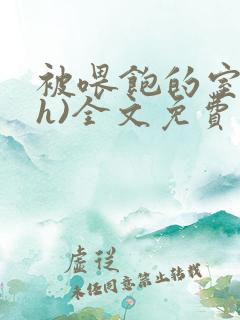 被喂饱的室
h)全文免费
虚从
未经同意禁止转载